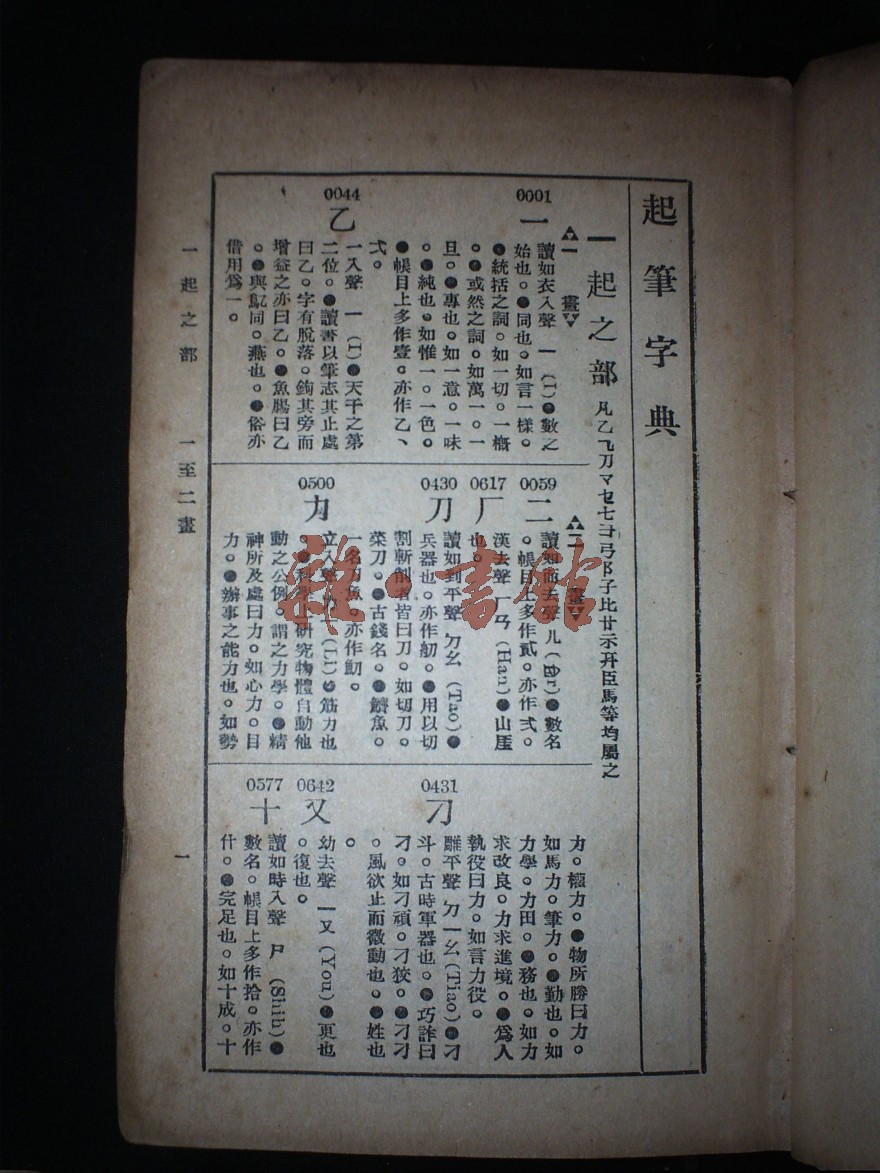 起筆字典
一起之部 凡乙乁刀マセ七彐弓阝子比廿示开臣馬等均屬之
一畫
0001
一
讀如衣入聲 一 (I)●數之
始也。●同也。如言一樣。
●統括之詞。如一切。一概
。●或然之詞。如萬一。一
旦。●專也。如一意。一味
。●純也。如惟一。一色。
●帳目上多作壹。亦作乙、
弌。
0044
乙
一入聲 一 (I)●天干之第
二位。●讀書以筆志其止處
曰乙。字有脫落。鉤其旁而
增益之亦曰乙。●魚腸曰乙
。●與鳦同。燕也。●俗亦
借用爲一。
二畫
0059
二
讀如而去聲 ㄦ (Er)●數名
。●帳目上多作貳。亦作弍。
0617
厂
漢去聲 ㄏㄢ (Han)●山厓
也。
0430
刀
讀如到平聲 ㄉㄠ (Tao)●
兵器也。亦作舠。●用以切
割斬削者皆曰刀。如切刀。
菜刀。●古錢名。●鱭魚。
一名刀魚。亦作魛。
0500
力
立入聲 (Li)●筋力也
。●科學上研究物體自動他
動之公例。謂之力學。●精
神所及處曰力。如心力。目
力。●辦事之能力也。如勢
力。權力。●物所勝曰力。
如馬力。筆力。●勤也。如
力學。力田。●務也。如力
求改良。力求進境。●爲人
執役曰力。如言力役。
0431
刁
雕平聲 ㄉㄧㄠ (Tiao)●刁
斗。古時軍器也。●巧詐曰
刁。如刁頑。刁狡。●刁刁
。風欲止而微動也。●姓也
。
0642
又
幼去聲 ㄧㄡ (You)●更也
。●復也。
0577
十
讀如時入聲 ㄕ (Shih)●
數名。帳目上多作拾。亦作
什。●完足也。如十成。十
一起之部 一至二畫
一
雜·書館